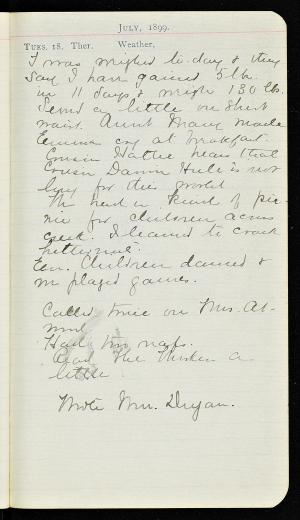 JULY, 1899.
TUES. 18. Ther. Weather,
I was weighed to-day & they
say I have gained 5 lb.
in 11 days & weigh 130 lbs.
Sewed a little on shirt
waist. Aunt Mary made
Emma cry at breakfast.
Cousin Hattie hears that
Cousin is not
long for this world
We had a kind of pic-
nic for children across
creek. I learned to crack
hickernuts.
Eve. Children danced &
we played games.
Called twice on Mrs. At-
Had two naps.
Read The a
little
Wrote Mrs.